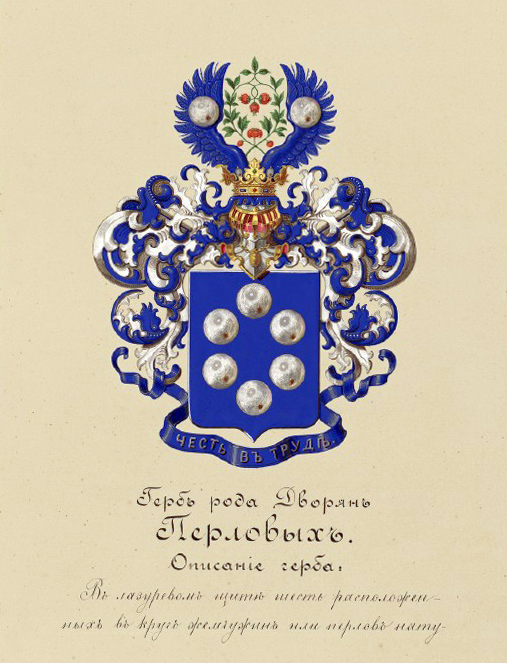 ЧЕСТЬ ВЪ ТРУДѢ.
Гербъ рода Дворянъ
Перловыхъ.
Описаніе герба:
Въ лазуревомъ щитѣ шесть расположен-
ныхъ въ кругъ жемчужинъ или перловъ нату-